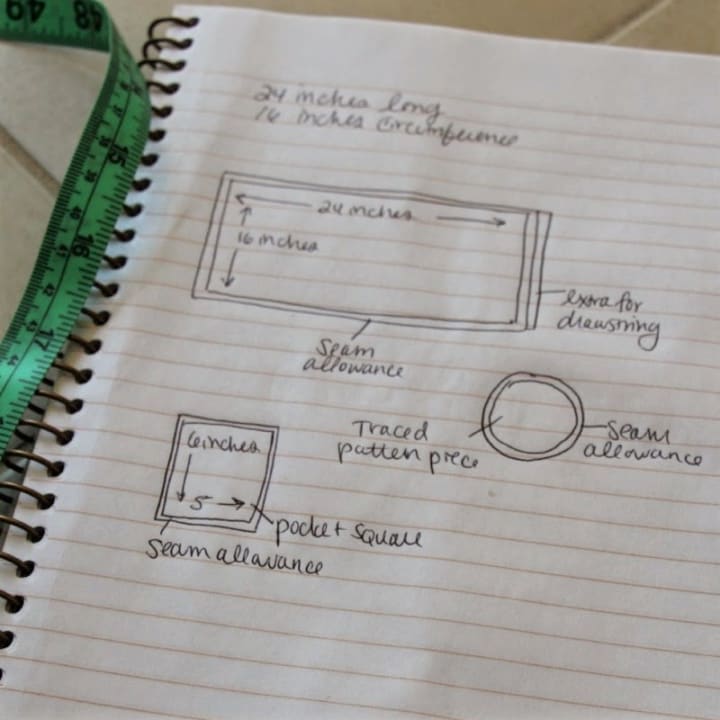 24 inches long
16 inches circumference
24 inches
16 inches
extra for
drawstring
Seam
allowance
Traced
patten piece
seam
allowance
6 inches
5
pocket square
Seam allowance
48
49
15
16
17